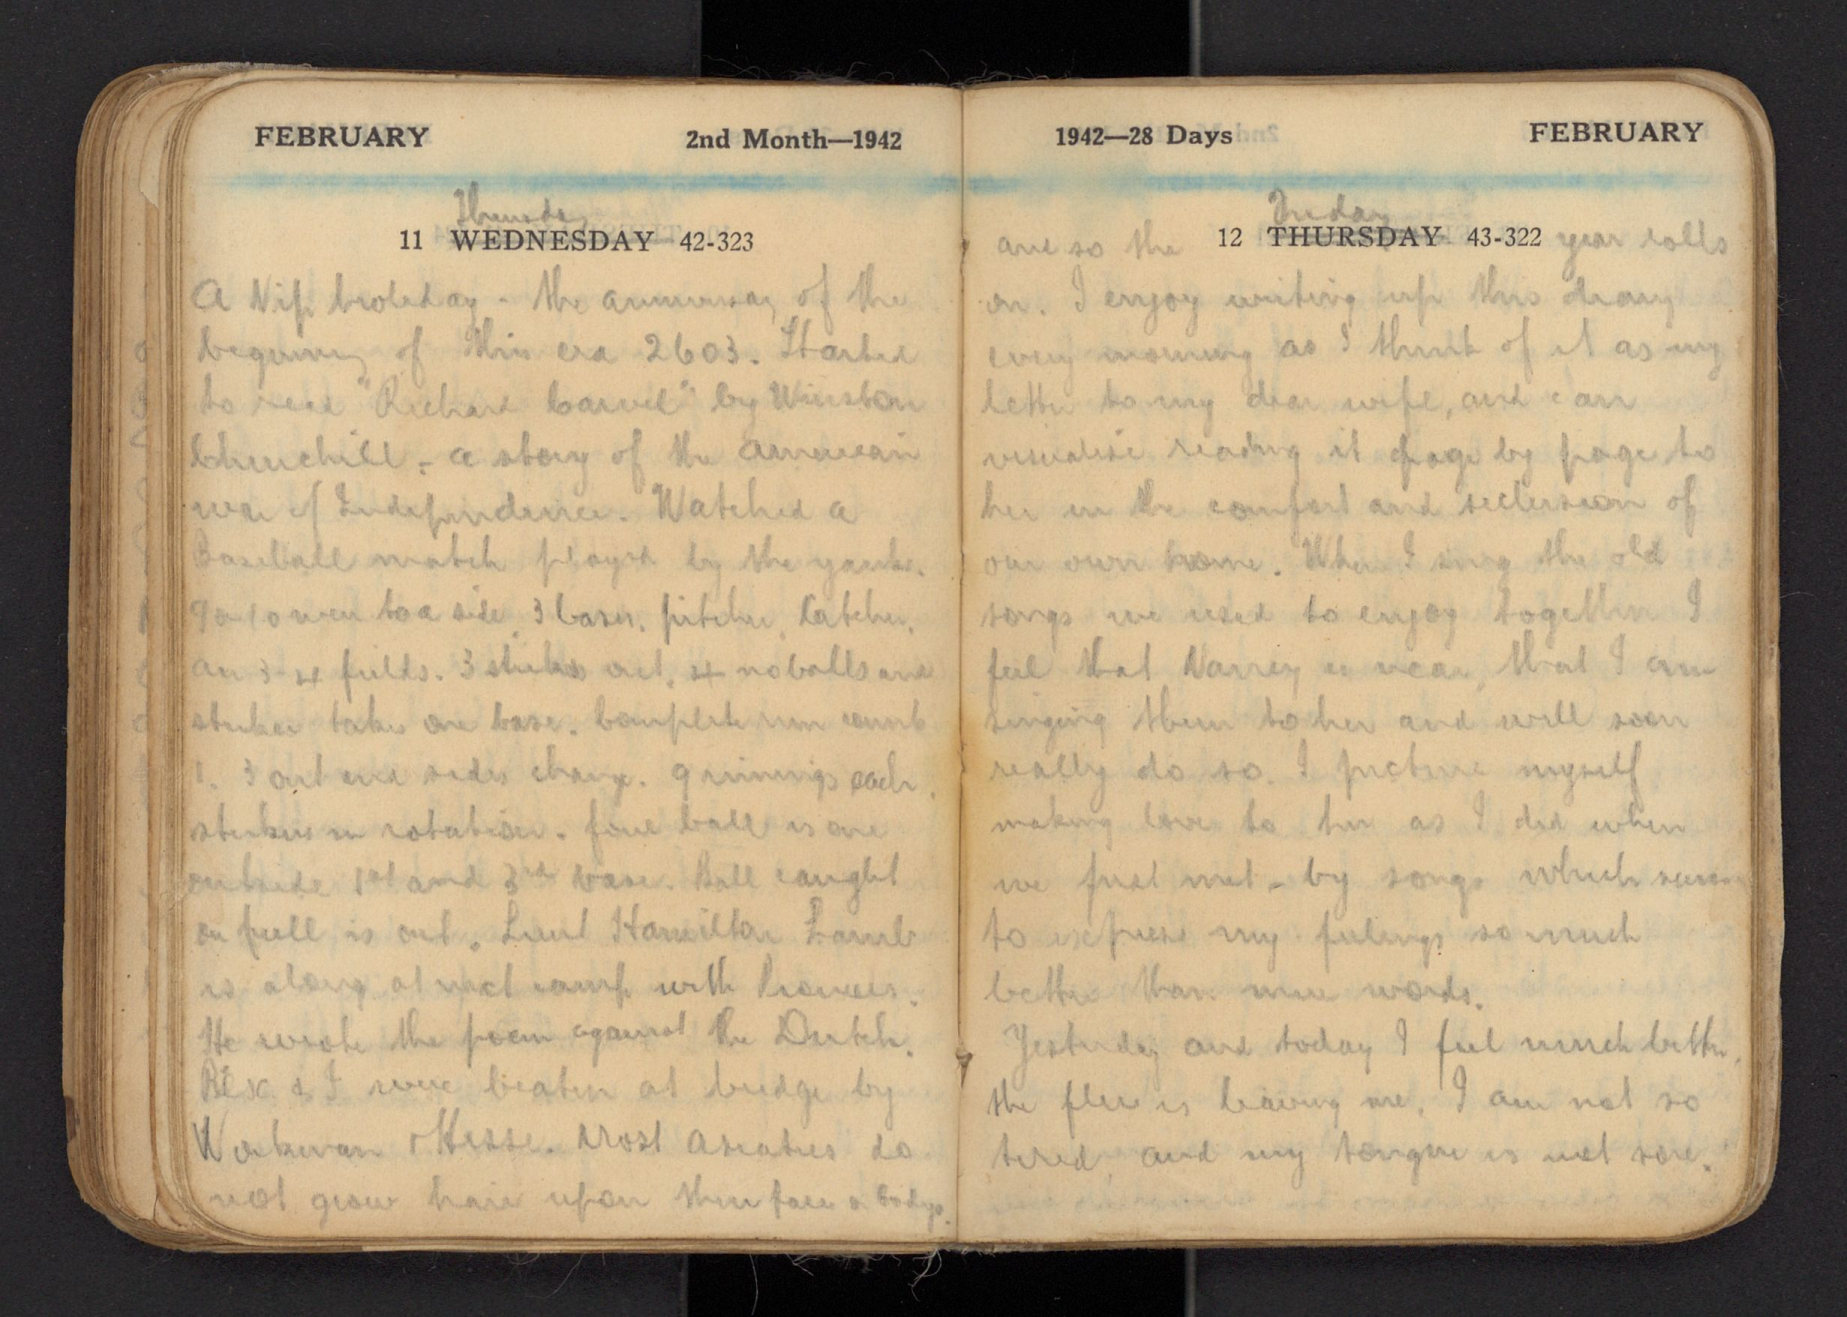 FEBRUARY 2nd Month—1942
Thursday
11 WEDNESDAY 42-323
A Nip holiday - the anniversary of the
beginning of this era 2603. Started
to read "Richard Carvel" by Winston
Churchill - a story of the American
war of Independence. Watched a
Baseball match played by the yanks.
9 or 10 men to a side. 3 bases, pitcher, catcher,
an 3-4 fields. 3 strikes out, 4 no balls and
striker takes one base. Complete run count
1. 3 out and sides change. 9 innings each.
strikers in rotation. foul ball is one
outside 1st and 3rd base. Ball caught
on full is out. Lieut Hamilton Lamb
is along at next camp with Pioneers.
He wrote the poem against the Dutch.
Rex & I were beaten at bridge by
Workman & Hesse. Most asiatics do
not grow hair upon their face or bodys.
1942—28 Days FEBRUARY
Friday
12 THURSDAY 43-322
and so the year rolls
on. I enjoy writing up this diary
every morning as I think of it as my
letter to my dear wife, and can
visualise reading it page by page to
her in the comfort and seclusion of
our own home. When I sing the old
songs we used to enjoy together I
feel that Nancy is near, that I am
singing them to her and will soon
really do so. I picture myself
making love to her as I did when
we first met - by songs which seem
to express my feelings so much
better than mere words.
Yesterday and today I feel much better,
the flu is leaving me. I am not so
tired, and my tongue is not sore.